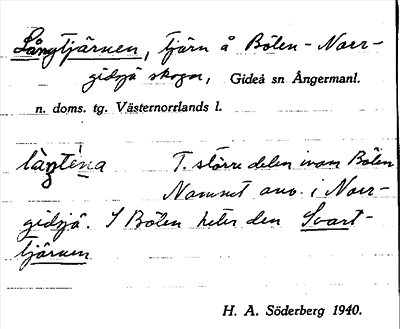 Långtjärnen, tjärn å Bölen-Norr-
gidsjö skogar, Gideå sn Ångermanl.
n. doms. tg. Västernorrlands l.
T. större delen inom Bölen
Namnet anv. i Norr-
gidsjö. I Bölen heter den Svart-
tjärnen
H. A. Söderberg 1940.